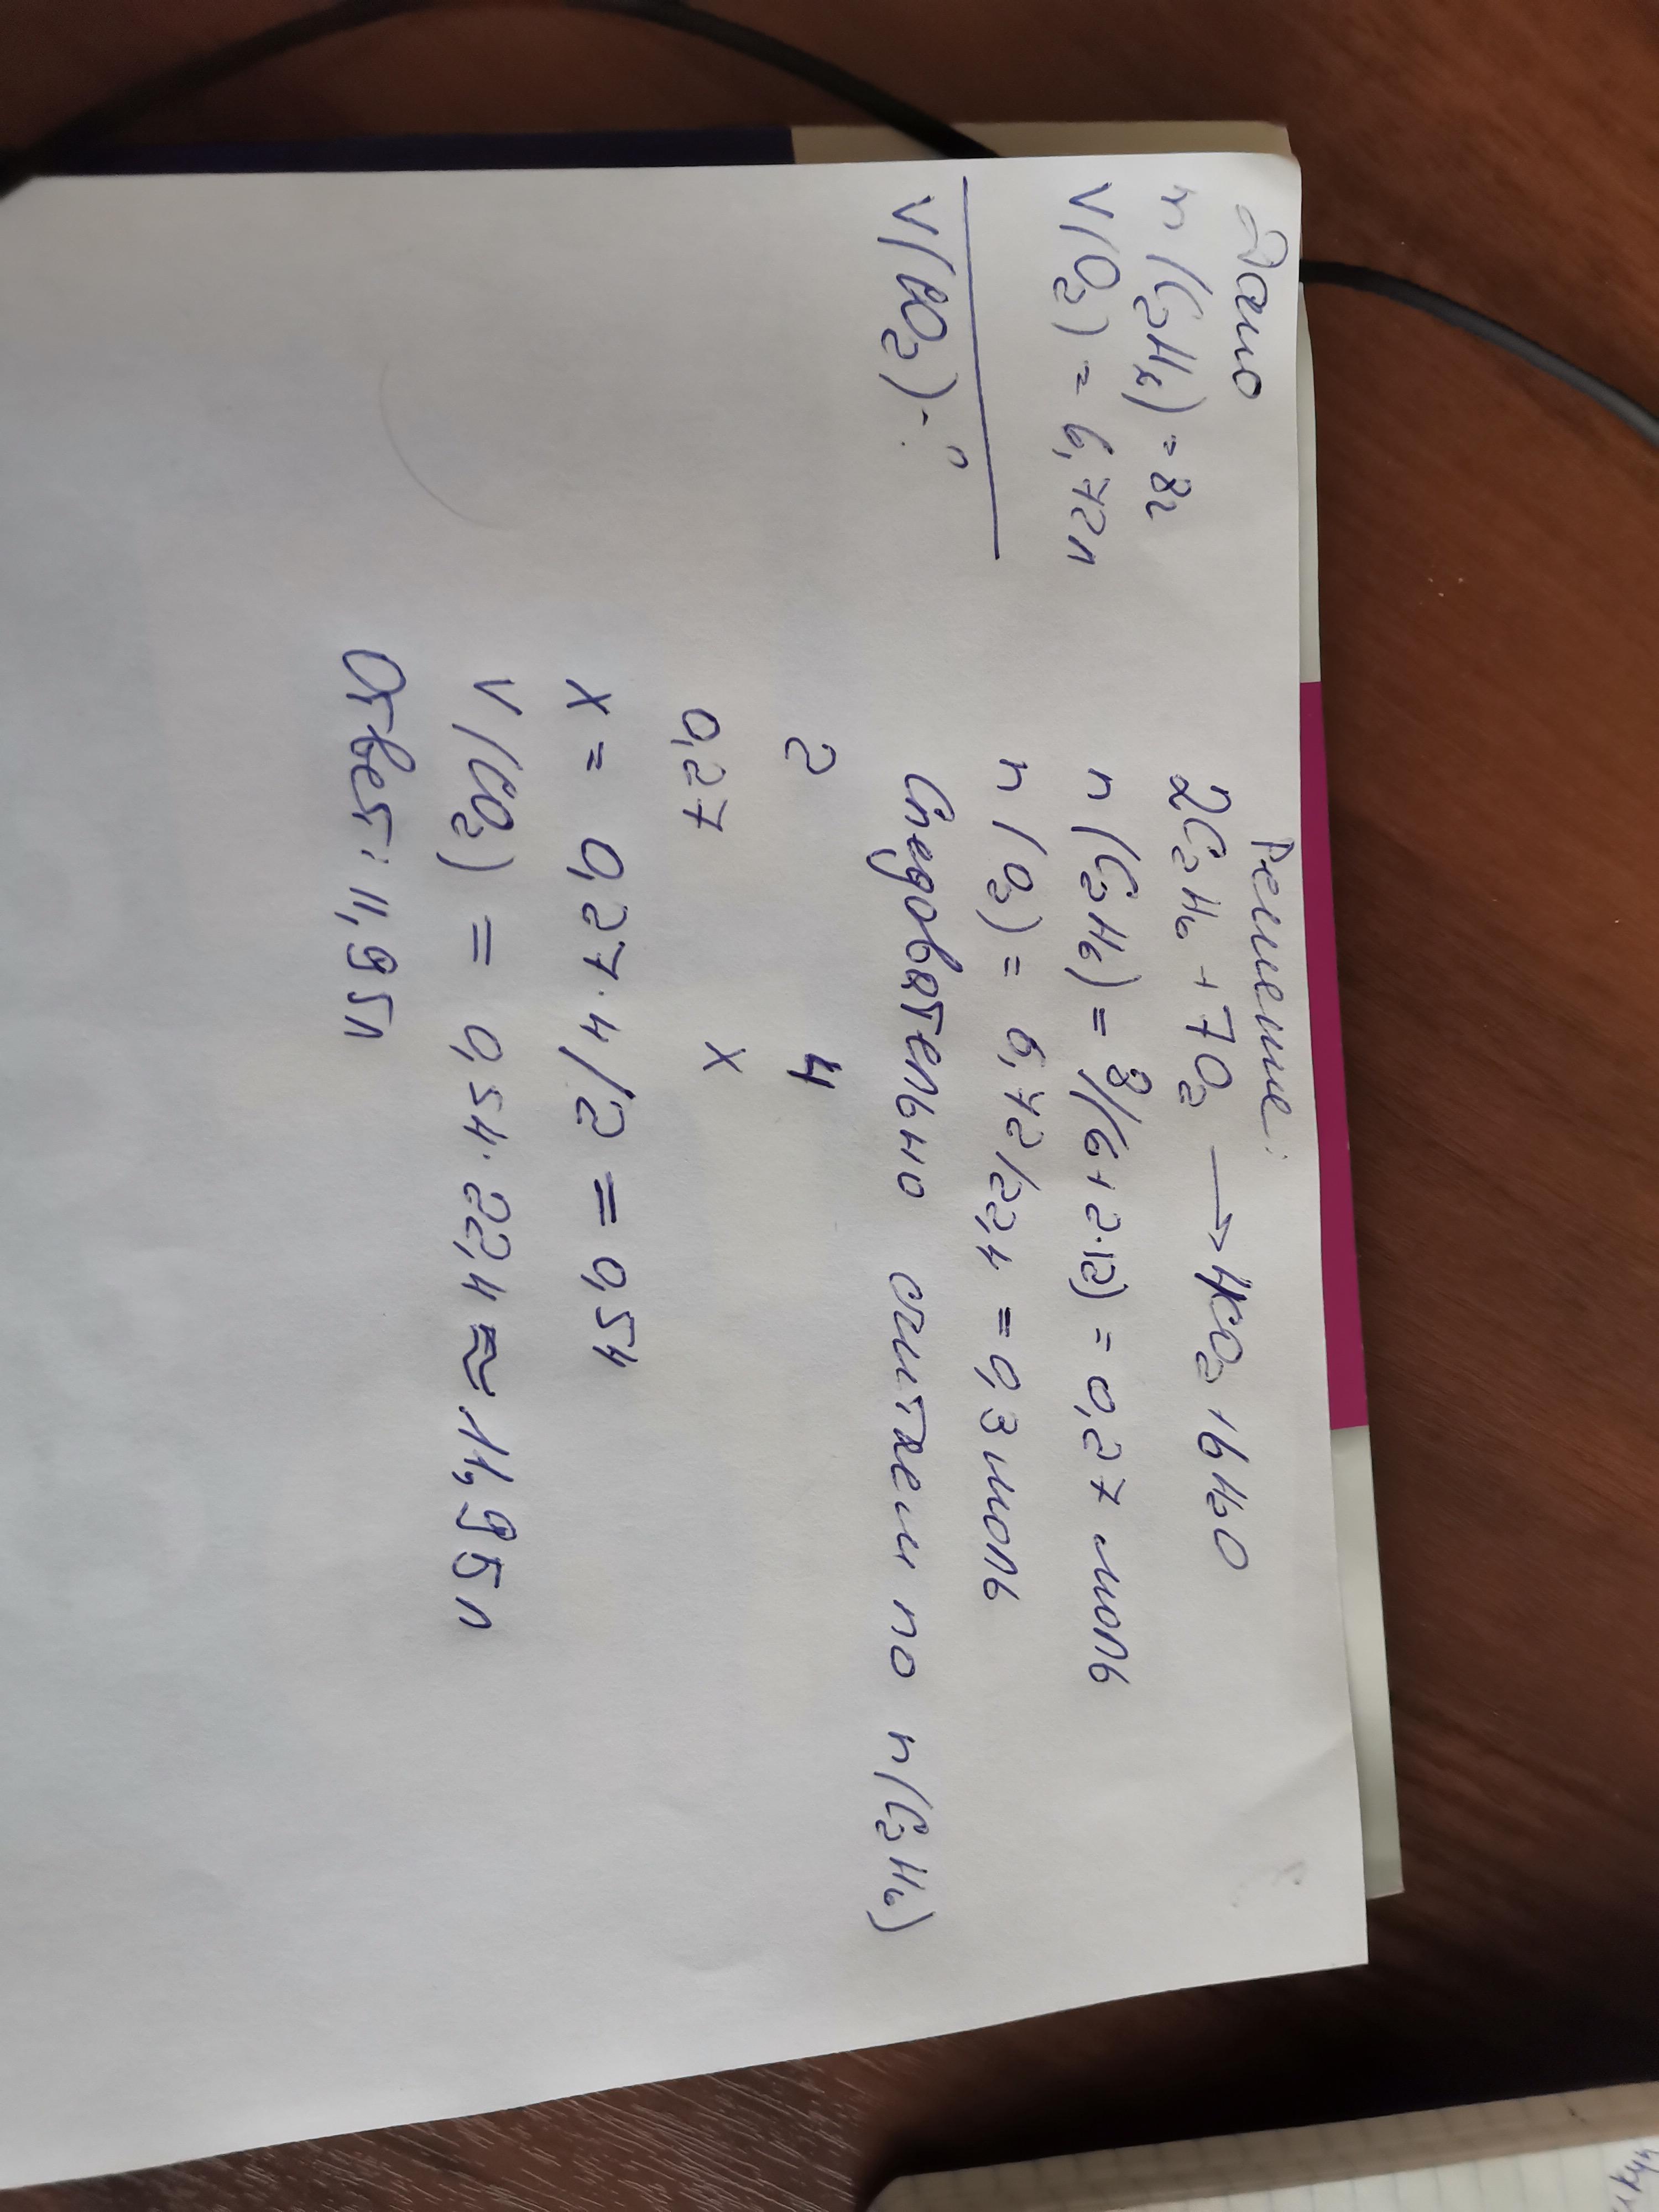 Дано
m(C2H6) = 8г
V(O2) = 6,72л
V(CO2) - ?
Решение:
2C2H6 + 7O2 → 4CO2 + 6H2O
n(C2H6) = 8/(6+2·12) = 0,27 моль
n(O2) = 6,72/22,4 = 0,3 моль
Следовательно считаем по n(C2H6)
2 4
0,27 x
x = 0,27·4/2 = 0,54
V(CO2) = 0,54·22,4 ≈ 11,95л
Ответ: 11,95л